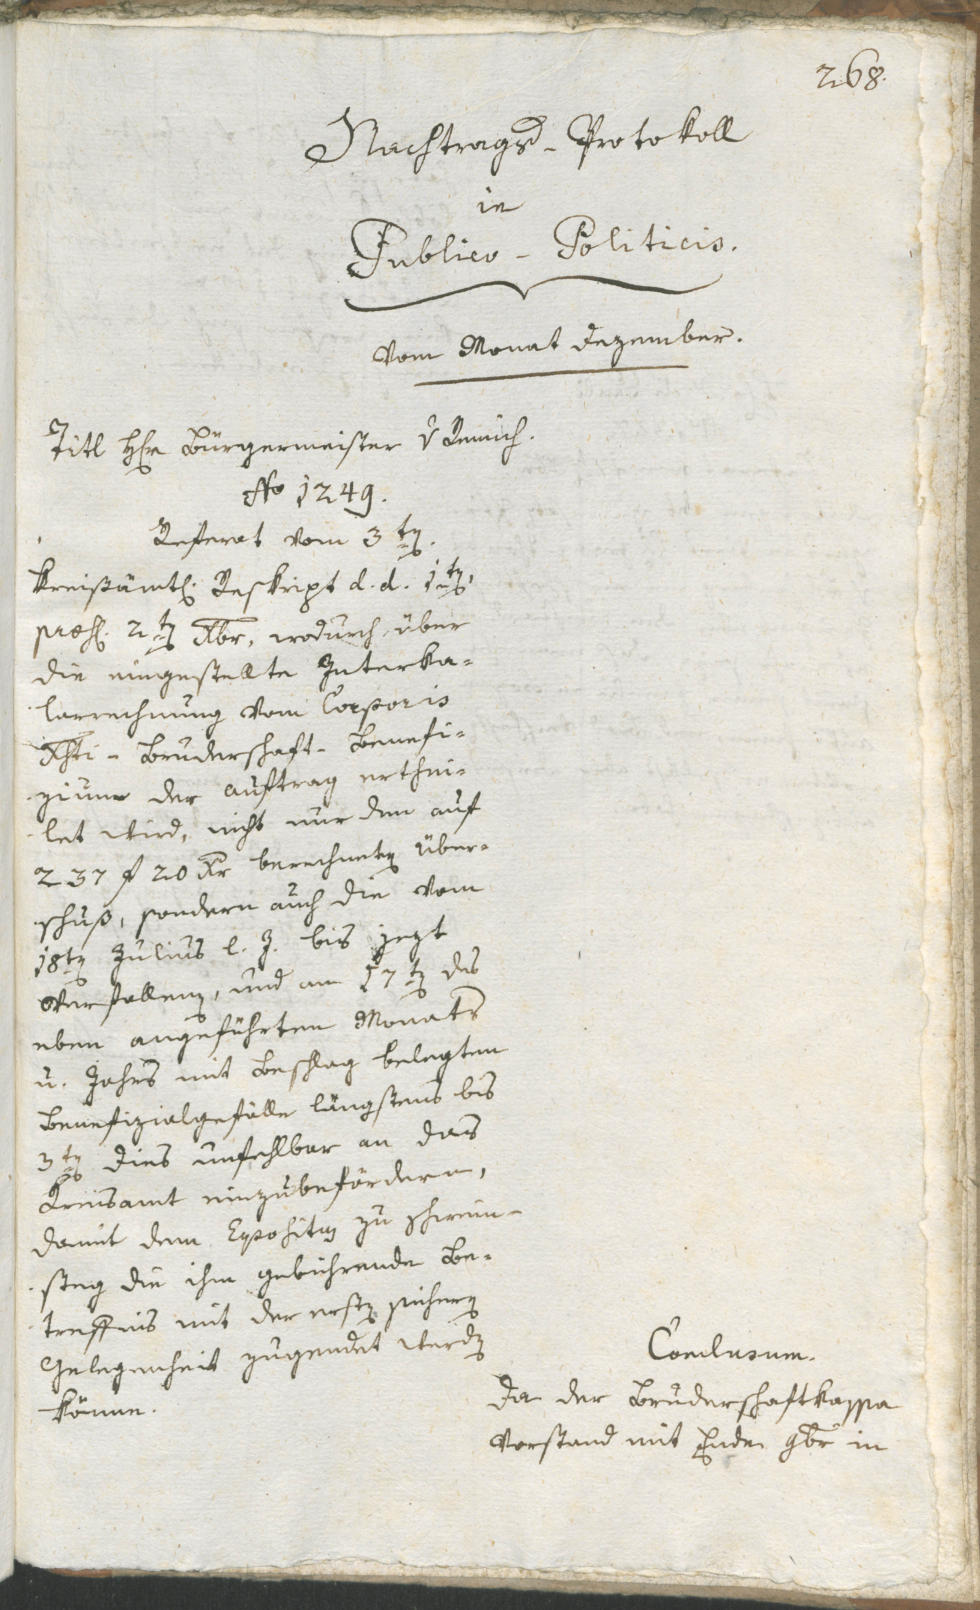 268.
Nachtrags-Protokoll
in
Publico-Politicis.
vom Monat Dezember.
Titl Hr Bürgermeister v
No 1249.
Referat vom 3ten.
Kreisämtl. Reskript d. d. 1ten,
praes. 2ten Xbr, wodurch über
die eingestellte Interka-
larrechnung vom Corporis
Xsti-Bruderschaft-Benefi-
zium der Auftrag erthei-
let wird, nicht nur den auf
237 f 20 Xr berechneten Über-
schuß, sondern auch die vom
18ten Julius l. J. bis jezt
verfallenen, und am 17ten des
eben angeführten Monats
u. Jahrs mit Beschlag belegten
Benefizialgefälle längstens bis
3ten dies unfehlbar an das
Kreisamt einzubefördern,
damit dem Expositen zu
die ihm gebührende Be-
treffnis mit der ersten sichern
Gelegenheit zugendet werden
könne.
Conclusum.
Da der Bruderschaftkassa
Vorstand mit Ende 9br in